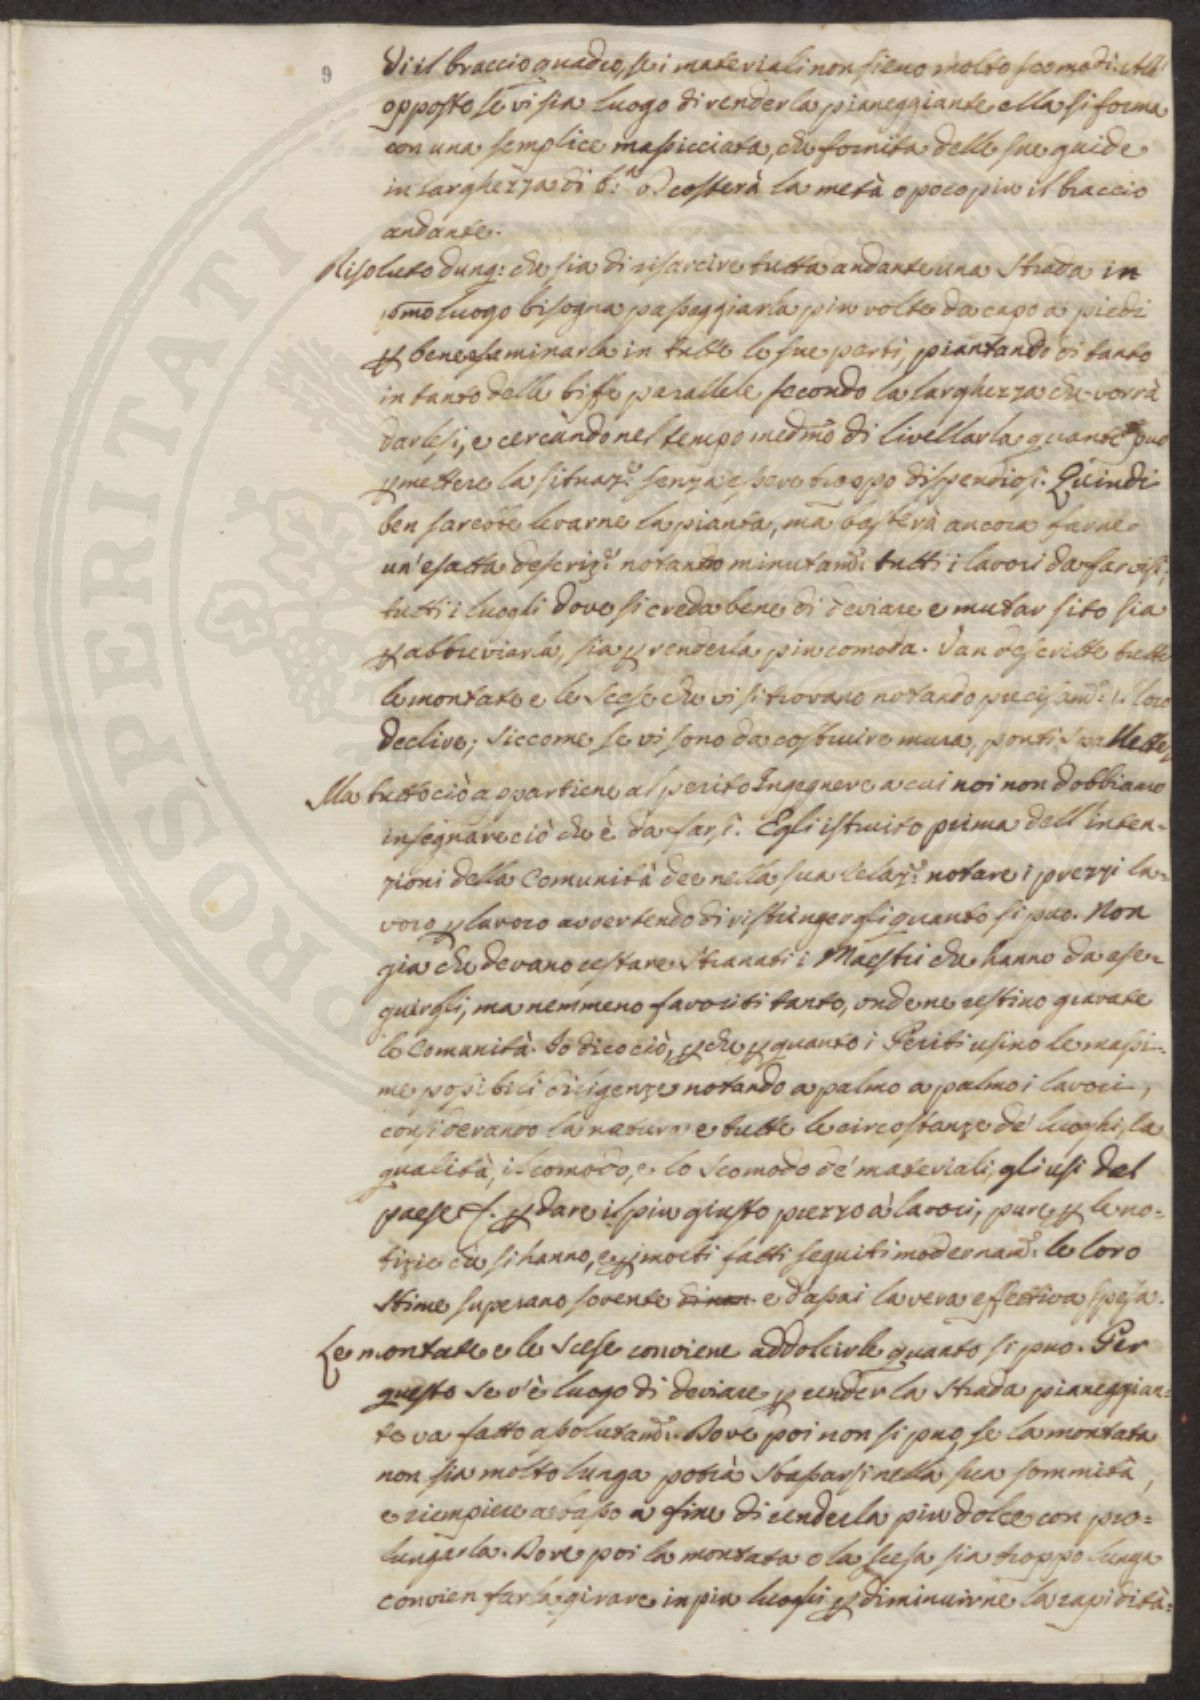 9
di il braccio quadro, se i materiali non sieno molto scomodi. All'
opposto se vi sia luogo di renderla pianeggiante ella si forma
con una semplice massicciata, che fornita delle sue guide
in larghezza di b.ª 6. costerà la metà o poco più il braccio
andante.
Risoluto dunq: che sia di risarcire tutta andante una strada in
p.mo luogo bisogna passeggiarla più volte da capo a piedi
p bene esaminarla in tutte le sue parti, piantando di tanto
in tanto delle biffe parallele secondo la larghezza che vorrà
darlesi, e cercando nel tempo medmo di livellarla quanto può
pmettere la situaz.e senza essere troppo dispendiosi. Quindi
ben sarebbe levarne la pianta, ma basterà ancora farne
un'esatta descriz.e notando minutam.e tutti i lavori da farvisi,
tutti i luoghi dove si creda bene di deviare e mutar sito sia
p abbreviarla, sia p renderla più comoda. Van descritte tutte
le montate e le scese che vi si trovano notando precisam.e il loro
declive; siccome se vi sono da costruire mura, ponti
Ma tutto ciò appartiene al perito Ingegnere a cui noi non dobbiamo
insegnare ciò che è da farsi. Egli istruito prima dell'inten-
zioni della Comunità dee nella sua relaz.e notare i prezzi la-
voro p lavoro avvertendo di ristringergli quanto si può. Non
già che devano restare stranati i Maestri che hanno da ese-
guirgli, ma nemmeno favoriti tanto, onde ne restino gravate
le Comunità. Io dico ciò, p che p quanto i Periti usino le massi-
me possibili diligenze notando a palmo a palmo i lavori,
considerando la natura e tutte le circostanze de' luoghi, la
qualità, il comodo, e lo scomodo de' materiali, gli usi del
paese &. p dare il più giusto prezzo a' lavori, pure p le no-
tizie che si hanno, e p molti fatti seguiti modernam.e le loro
stime superano sovente di non e d'assai la vera effettiva spesa.
Le montate e le scese conviene addolcirle quanto si può. Per
questo se v'è luogo di deviare p render la strada pianeggian-
te va fatto assolutam.e. Dove poi non si può, se la montata
non sia molto lunga potrà sbassarsi nella sua sommità,
e riempiere a basso a fine di renderla più dolce con pro-
lungarla. Dove poi la montata o la scesa sia troppo lunga
convien farla girare in più luoghi p diminuirne la rapidità:
PROSPERITATI